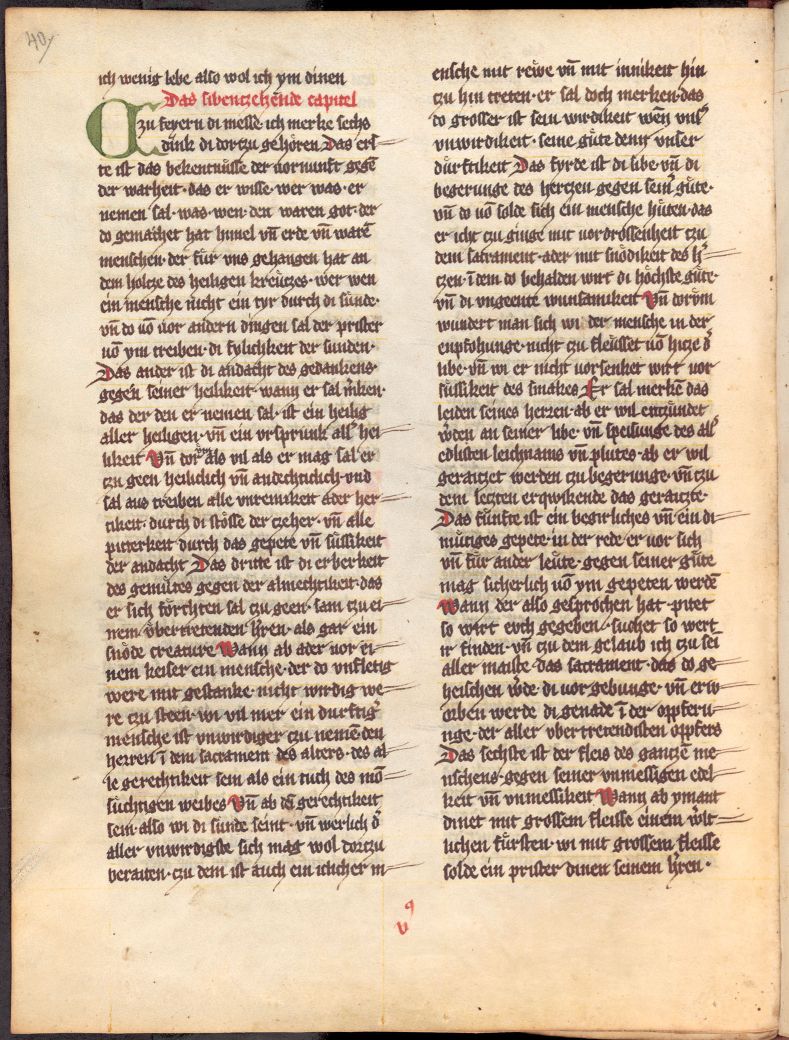 40
ich wenig lebe also wol ich ym dinen
Das sibenczehende capitel
Czu feyern di messe ich merke sechs
dink di dorczu gehören Das ers-
te ist das bekentnüsse der vornunft gegē
der warheit · das er wisse · wer was · er
nemen sal · was · wen den waren got · der
do gemachet hat himel vn̄ erde vn̄ warē
menschen · der für vns gehangen hat an
dem holcze des heiligen kreüczes · wer wen
ein mensche nicht ein tyr durch di sünde ·
vn̄ do vō vor andern dingen sal der prister
vō ym treiben · di fylichkeit der sunden ·
Das ander ist di andacht des gedankens ·
gegen seiner heilikeit · wann er sal m̄ken ·
das der den er nemen sal · ist ein heilig
aller heiligen · vn̄ ein vrsprunk all' hei
likeit Vn̄ dorvm als vil als er mag sal er
czu geen heiliclich vn̄ andechticlich · vnd
sal aus treiben alle vnreinikeit ader her-
tikeit · durch di stösse der czeher · vn̄ alle
pitterkeit durch das gepete vn̄ süssikeit
der andacht Das dritte ist di erberkeit
des gemütes gegen der almechtikeit · das
er sich förchten sal czu geen · sam czu ei-
nem vbertretenden h'ren · als gar ein
snöde creature Wann ab ader vor ei-
nem keiser ein mensche · der do vnfletig
were mit gestanke · nicht wirdig we-
re czu steen · wi vil mer ein durftig'
mensche ist vnwirdiger czu nemen den
herren ī dem sacrament des alters · des al-
le gerechtikeit sein als ein tuch des mō-
süchtigen weibes Vn̄ ab di gerechtikeit
sein · also wi di sünde seint · vn̄ werlich d'
aller vnwirdigste sich mag wol dorczu
beraiten · czu dem ist auch ein iclicher m-
ensche mit rewe vn̄ mit innikeit hin
czu hin treten · er sal doch merken · das
so grosser ist sein wirdikeit wen vns'
vnwirdikeit · seine güte denn vnser
dürftikeit Das fyrde ist di libe · vn̄ di
begerunge des herczen gegen sein' güte ·
vn̄ do vō solde sich ein mensche hüten · das
er icht czu ginge mit vordrossenheit czu
dem sacrament · ader mit snödikeit des h'-
czen · ī dem do behalden wirt di höchste güte ·
vn̄ di vngeente wunsamikeit Vn̄ dorvm
wundert man sich wi der mensche in der
enpfohunge · nicht czu fleüsset vō hicze d'
libe · vn̄ wi er nicht vorsenket wirt vor
süssikeit des smakes Er sal merkē das
leiden seines herren · ab er wil entzündet
w'den an seiner libe · vn̄ speisunge des all'
edlisten leichnams vn̄ plutes · ab er wil
geraitzet werden czu begerunge · vn̄ czu
dem leczten erqwikende das geraitzte ·
Das fünfte ist ein begirliches vn̄ ein di-
mütiges gepete · in der rede er vor sich
vn̄ für ander leüte · gegen seiner güte
mag sicherlich vō ym gepeten werdē
Wann der also gesprochen hat · pitet
so wirt evch gegeben · suchet so wert
ir finden · vn̄ czu dem gelaub ich czu sei
aller maiste · das sacrament · das do ge-
heischen w'de · di vorgebunge · vn̄ erw-
orben werde di genade ī der oppferu-
nge · der aller vbertretendisten oppfers
Das sechste ist der fleis des ganczē me-
nschens · gegen seiner vnmessigen edel-
keit vn̄ vnmessikeit Wann ab ymant
dinet mit grossem fleisse einem w'lt-
lichen fürsten · wi mit grossem fleisse
solde ein prister dinen seinem h'ren ·